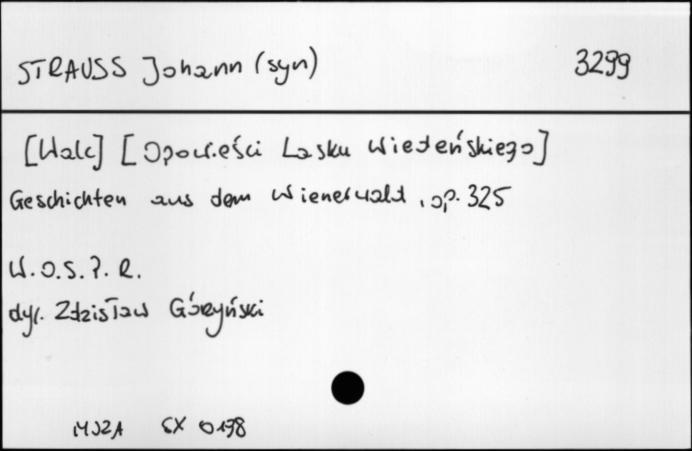 STRAUSS Johann (syn) 3299
[Walc] [Opowieści Lasku Wiedeńskiego]
Geschichten aus dem Wienerwald, op. 325
W.O.S.P.R.
dyr. Zdzisław Górzyński
MUZA SX 0198